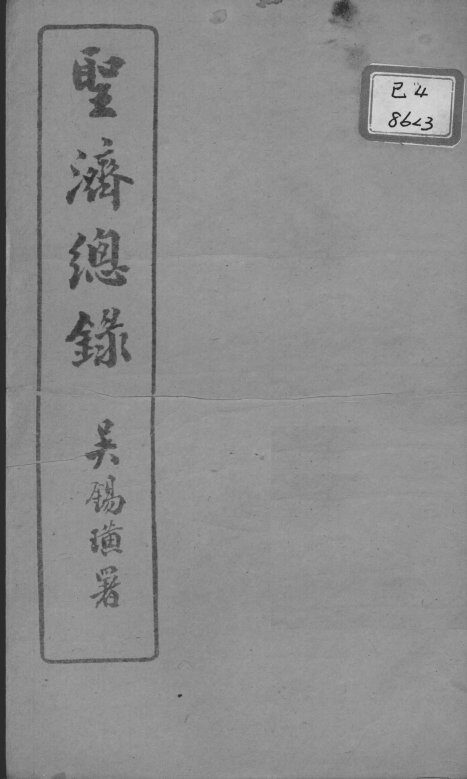 聖濟總錄
吳錫璜署
已4
8623